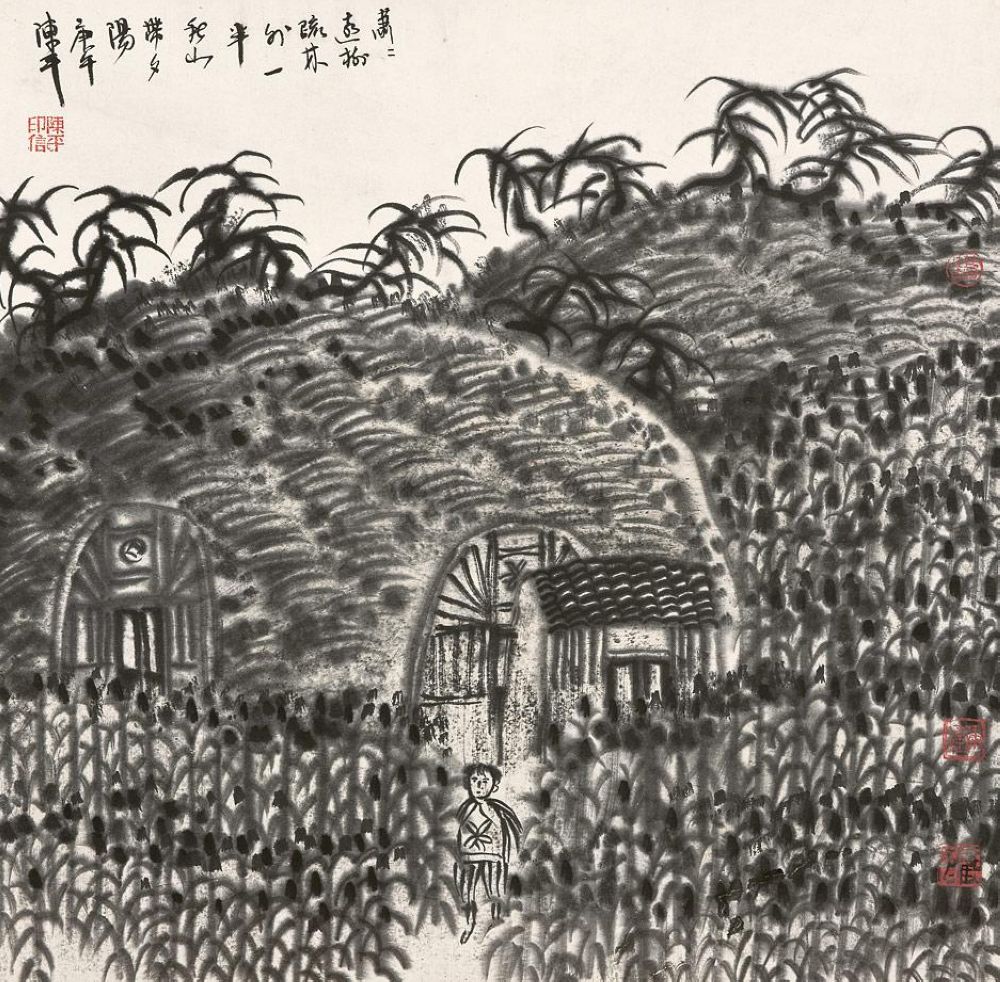 蕭〻
遠樹
疏林
外一
半
秋山
帶夕
陽
庚午
陳平
陳平
印信